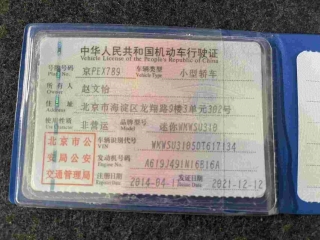 中华人民共和国机动车行驶证
Vehicle License of the People's Republic of China
号牌号码 京PEX789 车辆类型 小型轿车
Plate No. Vehicle Type
所有人 赵文怡
Owner
住址 北京市海淀区龙翔路9楼3单元302号
Address
使用性质 非营运 品牌型号 迷你WMWSU31B
北京市公 车辆识别代号 WMWSU31B5DT617134
VIN
安局公安 发动机号码 A619J491N16B16A
Engine No.
交通管理局 注册日期 2014-04-1 发证日期 2021-12-12